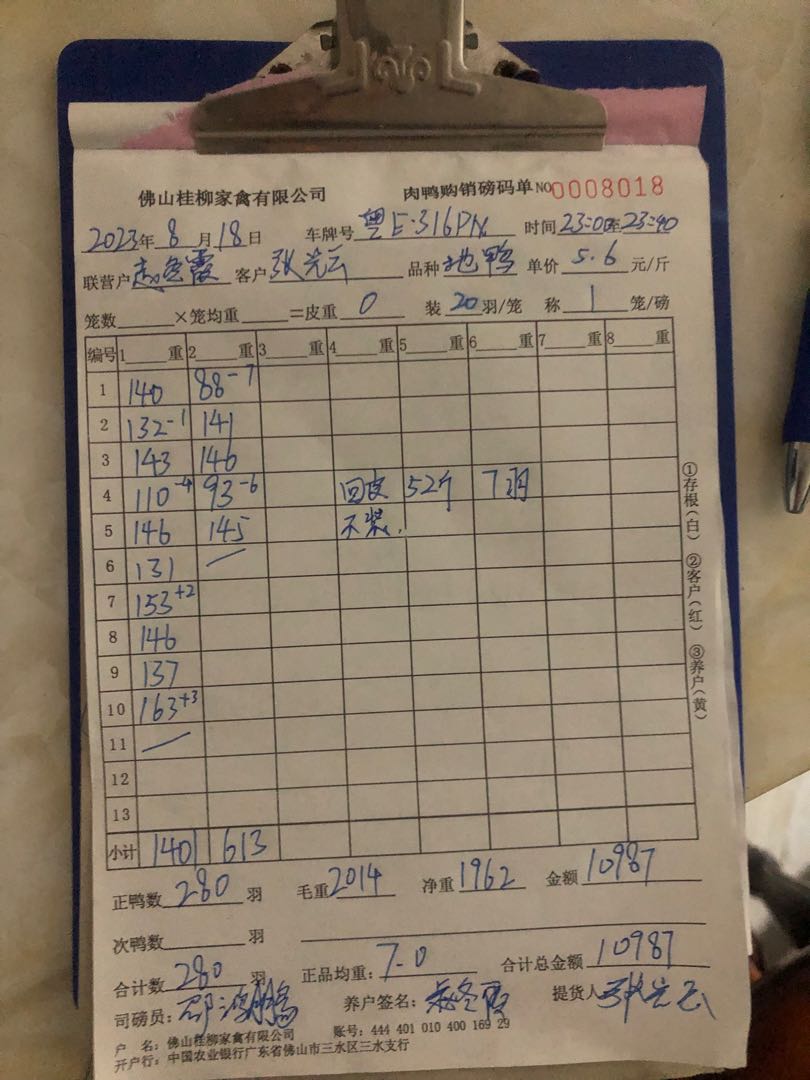 佛山桂柳家禽有限公司 肉鸭购销磅码单 NO 0008018
2023年 8 月 18 日 车牌号 粤E·316PN 时间 23:00至23:40
联营户 赵冬霞 客户 张光云 品种 地鸭 单价 5.6 元/斤
笼数 ×笼均重 =皮重 0 装 20 羽/笼 称 1 笼/磅
编号 1 重 2 重 3 重 4 重 5 重 6 重 7 重 8 重
1 140 88-7
2 132-1 141
3 143 146
4 110-4 93-6 回皮 52斤 7羽
5 146 145 不装.
6 131 —
7 153+2
8 146
9 137
10 163+3
11 —
12
13
小计 1401 613
①存根(白) ②客户(红) ③养户(黄)
正鸭数 280 羽 毛重 2014 净重 1962 金额 10987
次鸭数 羽
合计数 280 羽 正品均重: 7.0 合计总金额 10987
司磅员: 养户签名: 赵冬霞 提货人 张光云
户 名: 佛山桂柳家禽有限公司 账号: 444 401 010 400 169 29
开户行: 中国农业银行广东省佛山市三水区三水支行